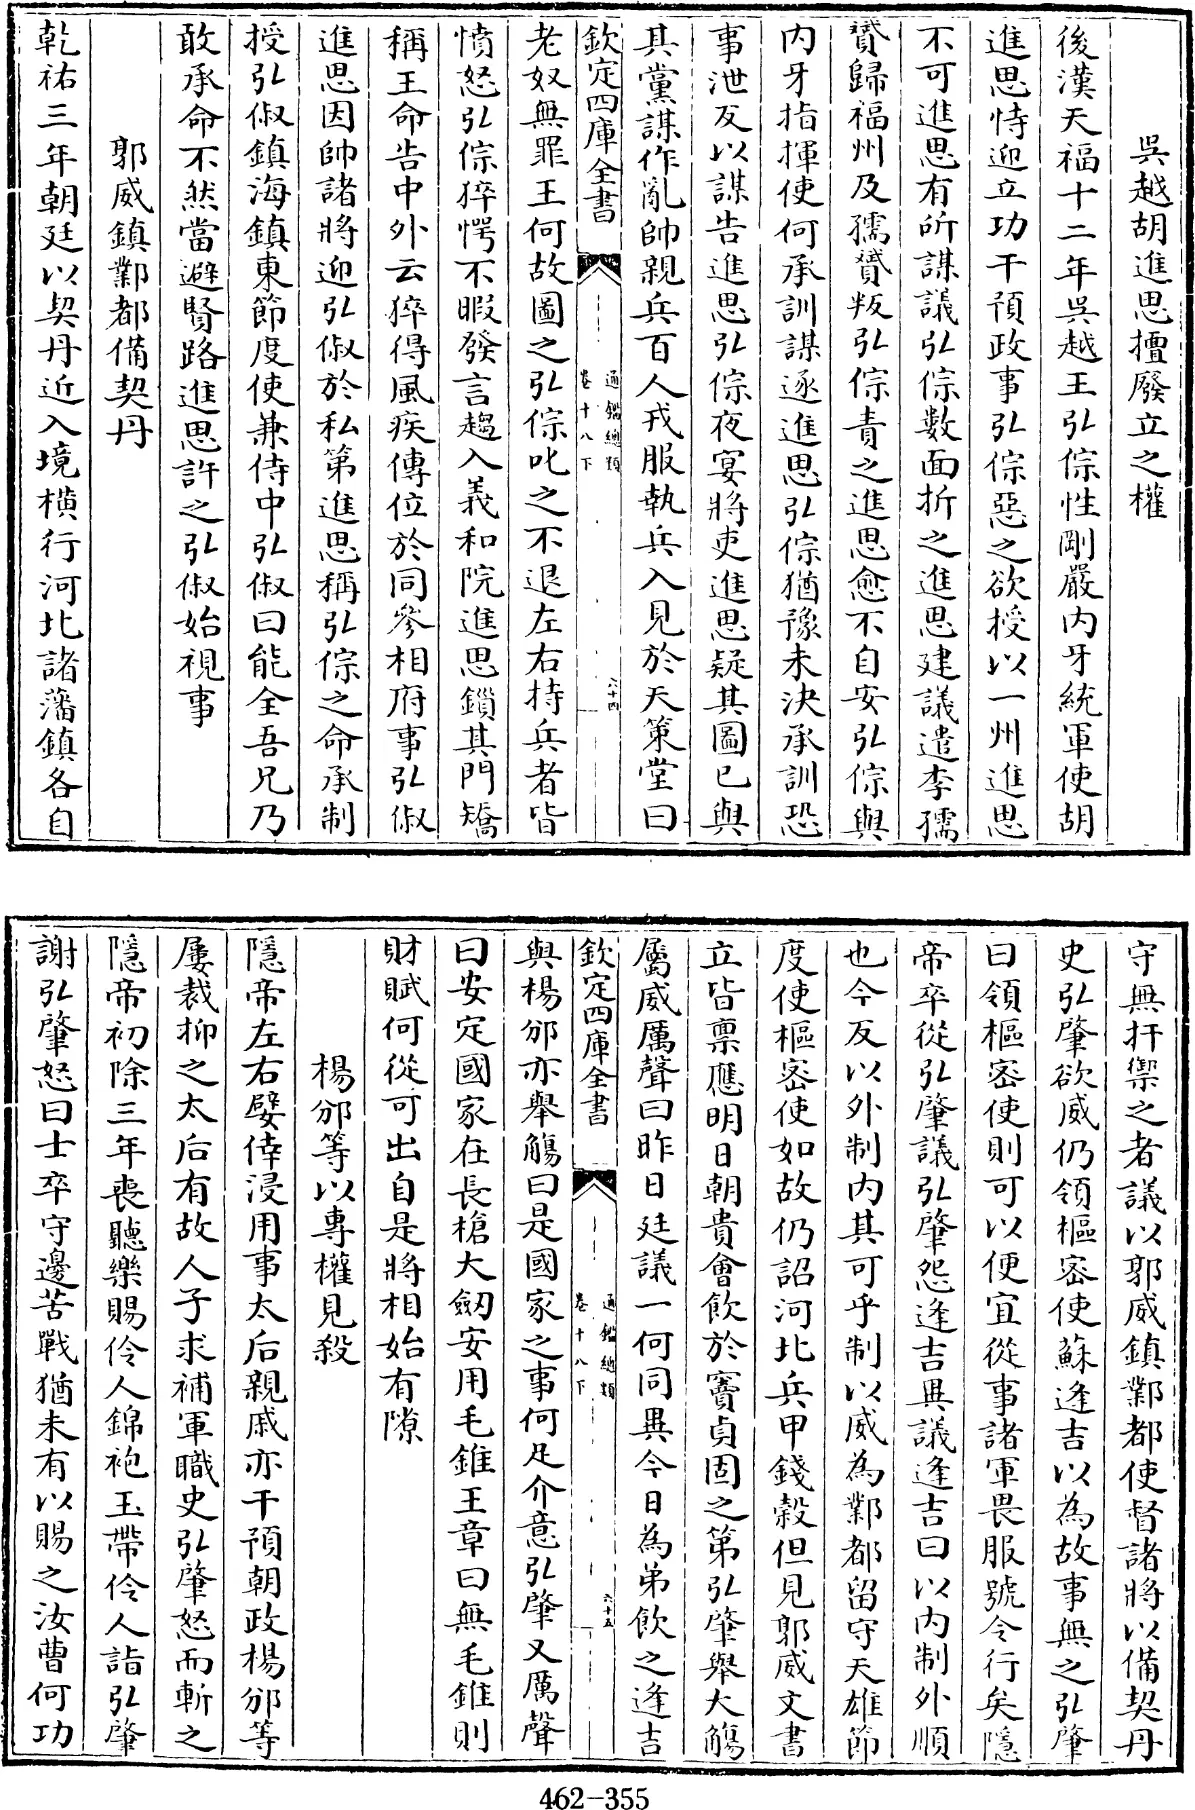 吳越胡進思擅廢立之權
後漢天福十二年吳越王弘倧性剛嚴内牙統軍使胡
進思恃迎立功干預政事弘倧惡之欲授以一州進思
不可進思有所謀議弘倧數面折之進思建議遣李孺
贇歸福州及孺贇叛弘倧責之進思愈不自安弘倧與
内牙指揮使何承訓謀逐進思弘倧猶豫未決承訓恐
事泄反以謀告進思弘倧夜宴將吏進思疑其圖已與
其黨謀作亂帥親兵百人戎服執兵入見於天策堂曰
欽定四庫全書
通鑑總類
卷十八下
六十四
老奴無罪王何故圖之弘倧叱之不退左右持兵者皆
憤怒弘倧猝愕不暇發言趨入義和院進思鎖其門矯
稱王命告中外云猝得風疾傳位於同參相府事弘俶
進思因帥諸將迎弘俶於私第進思稱弘倧之命承制
授弘俶鎮海鎮東節度使兼侍中弘俶曰能全吾兄乃
敢承命不然當避賢路進思許之弘俶始視事
郭威鎮鄴都備契丹
乾祐三年朝廷以契丹近入境橫行河北諸藩鎮各自
守無扞禦之者議以郭威鎮鄴都使督諸將以備契丹
史弘肇欲威仍領樞密使蘇逢吉以為故事無之弘肇
曰領樞密使則可以便宜從事諸軍畏服號令行矣隱
帝卒從弘肇議弘肇怨逢吉異議逢吉曰以内制外順
也今反以外制内其可乎制以威為鄴都留守天雄節
度使樞密使如故仍詔河北兵甲錢穀但見郭威文書
立皆禀應明日朝貴會飲於竇貞固之第弘肇舉大觴
屬威厲聲曰昨日廷議一何同異今日為弟飲之逢吉
欽定四庫全書
通鑑總類
卷十八下
六十五
與楊邠亦舉觴曰是國家之事何足介意弘肇又厲聲
曰安定國家在長槍大劒安用毛錐王章曰無毛錐則
財賦何從可出自是將相始有隙
楊邠等以專權見殺
隱帝左右嬖倖浸用事太后親戚亦干預朝政楊邠等
屢裁抑之太后有故人子求補軍職史弘肇怒而斬之
隱帝初除三年喪聽樂賜伶人錦袍玉帶伶人詣弘肇
謝弘肇怒曰士卒守邊苦戰猶未有以賜之汝曹何功
462-355